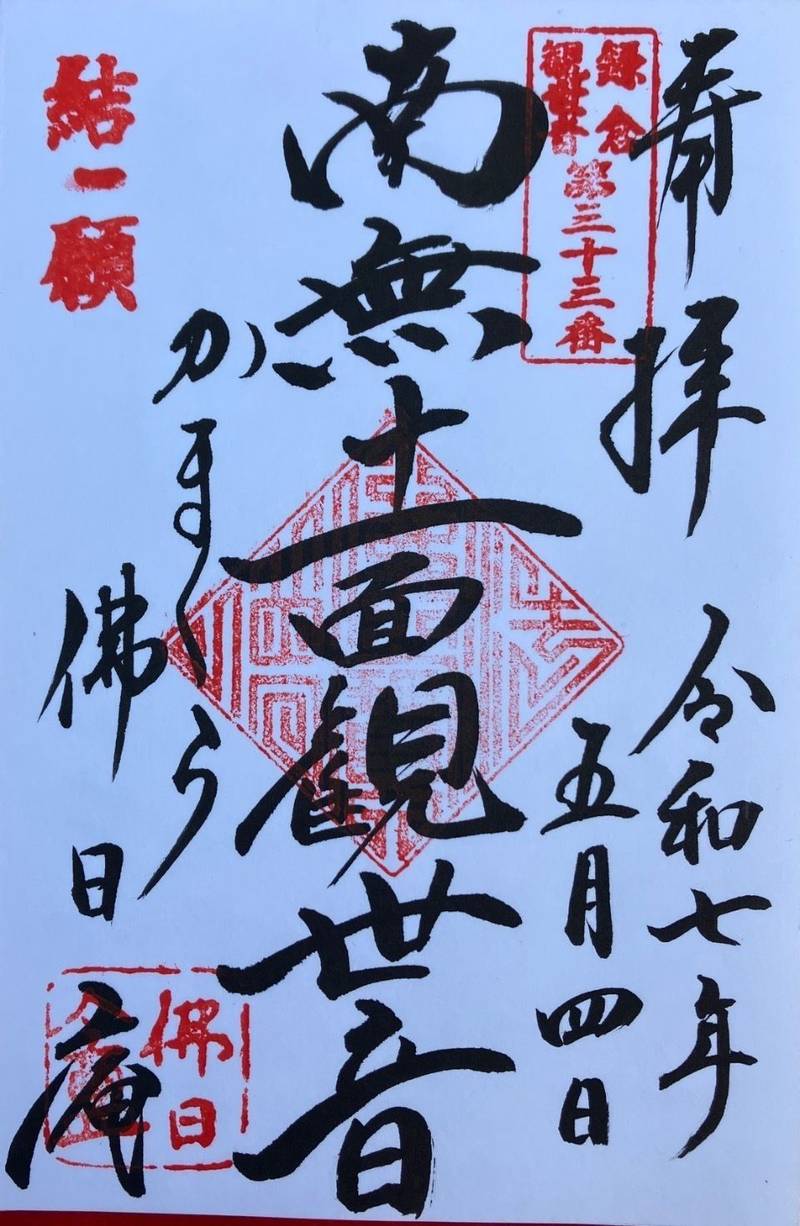 奉拝
令和七年
五月四日
鎌倉
観世音
第三十三番
南無十一面観世音
かまくら
佛日庵
結願
佛日